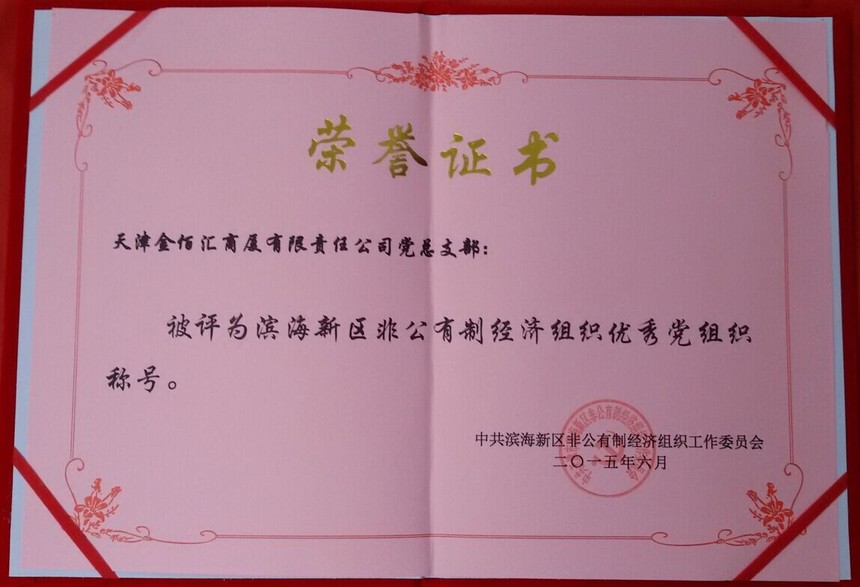 荣誉证书
天津金佰汇商厦有限责任公司党总支部：
被评为滨海新区非公有制经济组织优秀党组织
称号。
中共滨海新区非公有制经济组织工作委员会
二〇一五年六月